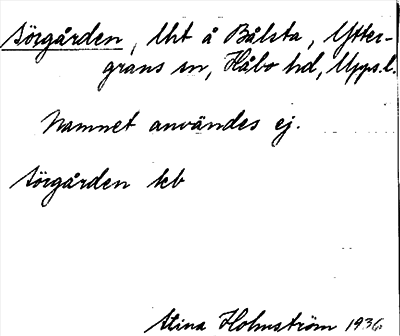 Sörgården, lht å Bålsta, Ytter-
grans sn, Håbo hd, Upps.l.
Namnet användes ej.
Sörgården kb
Stina Holmström 1936